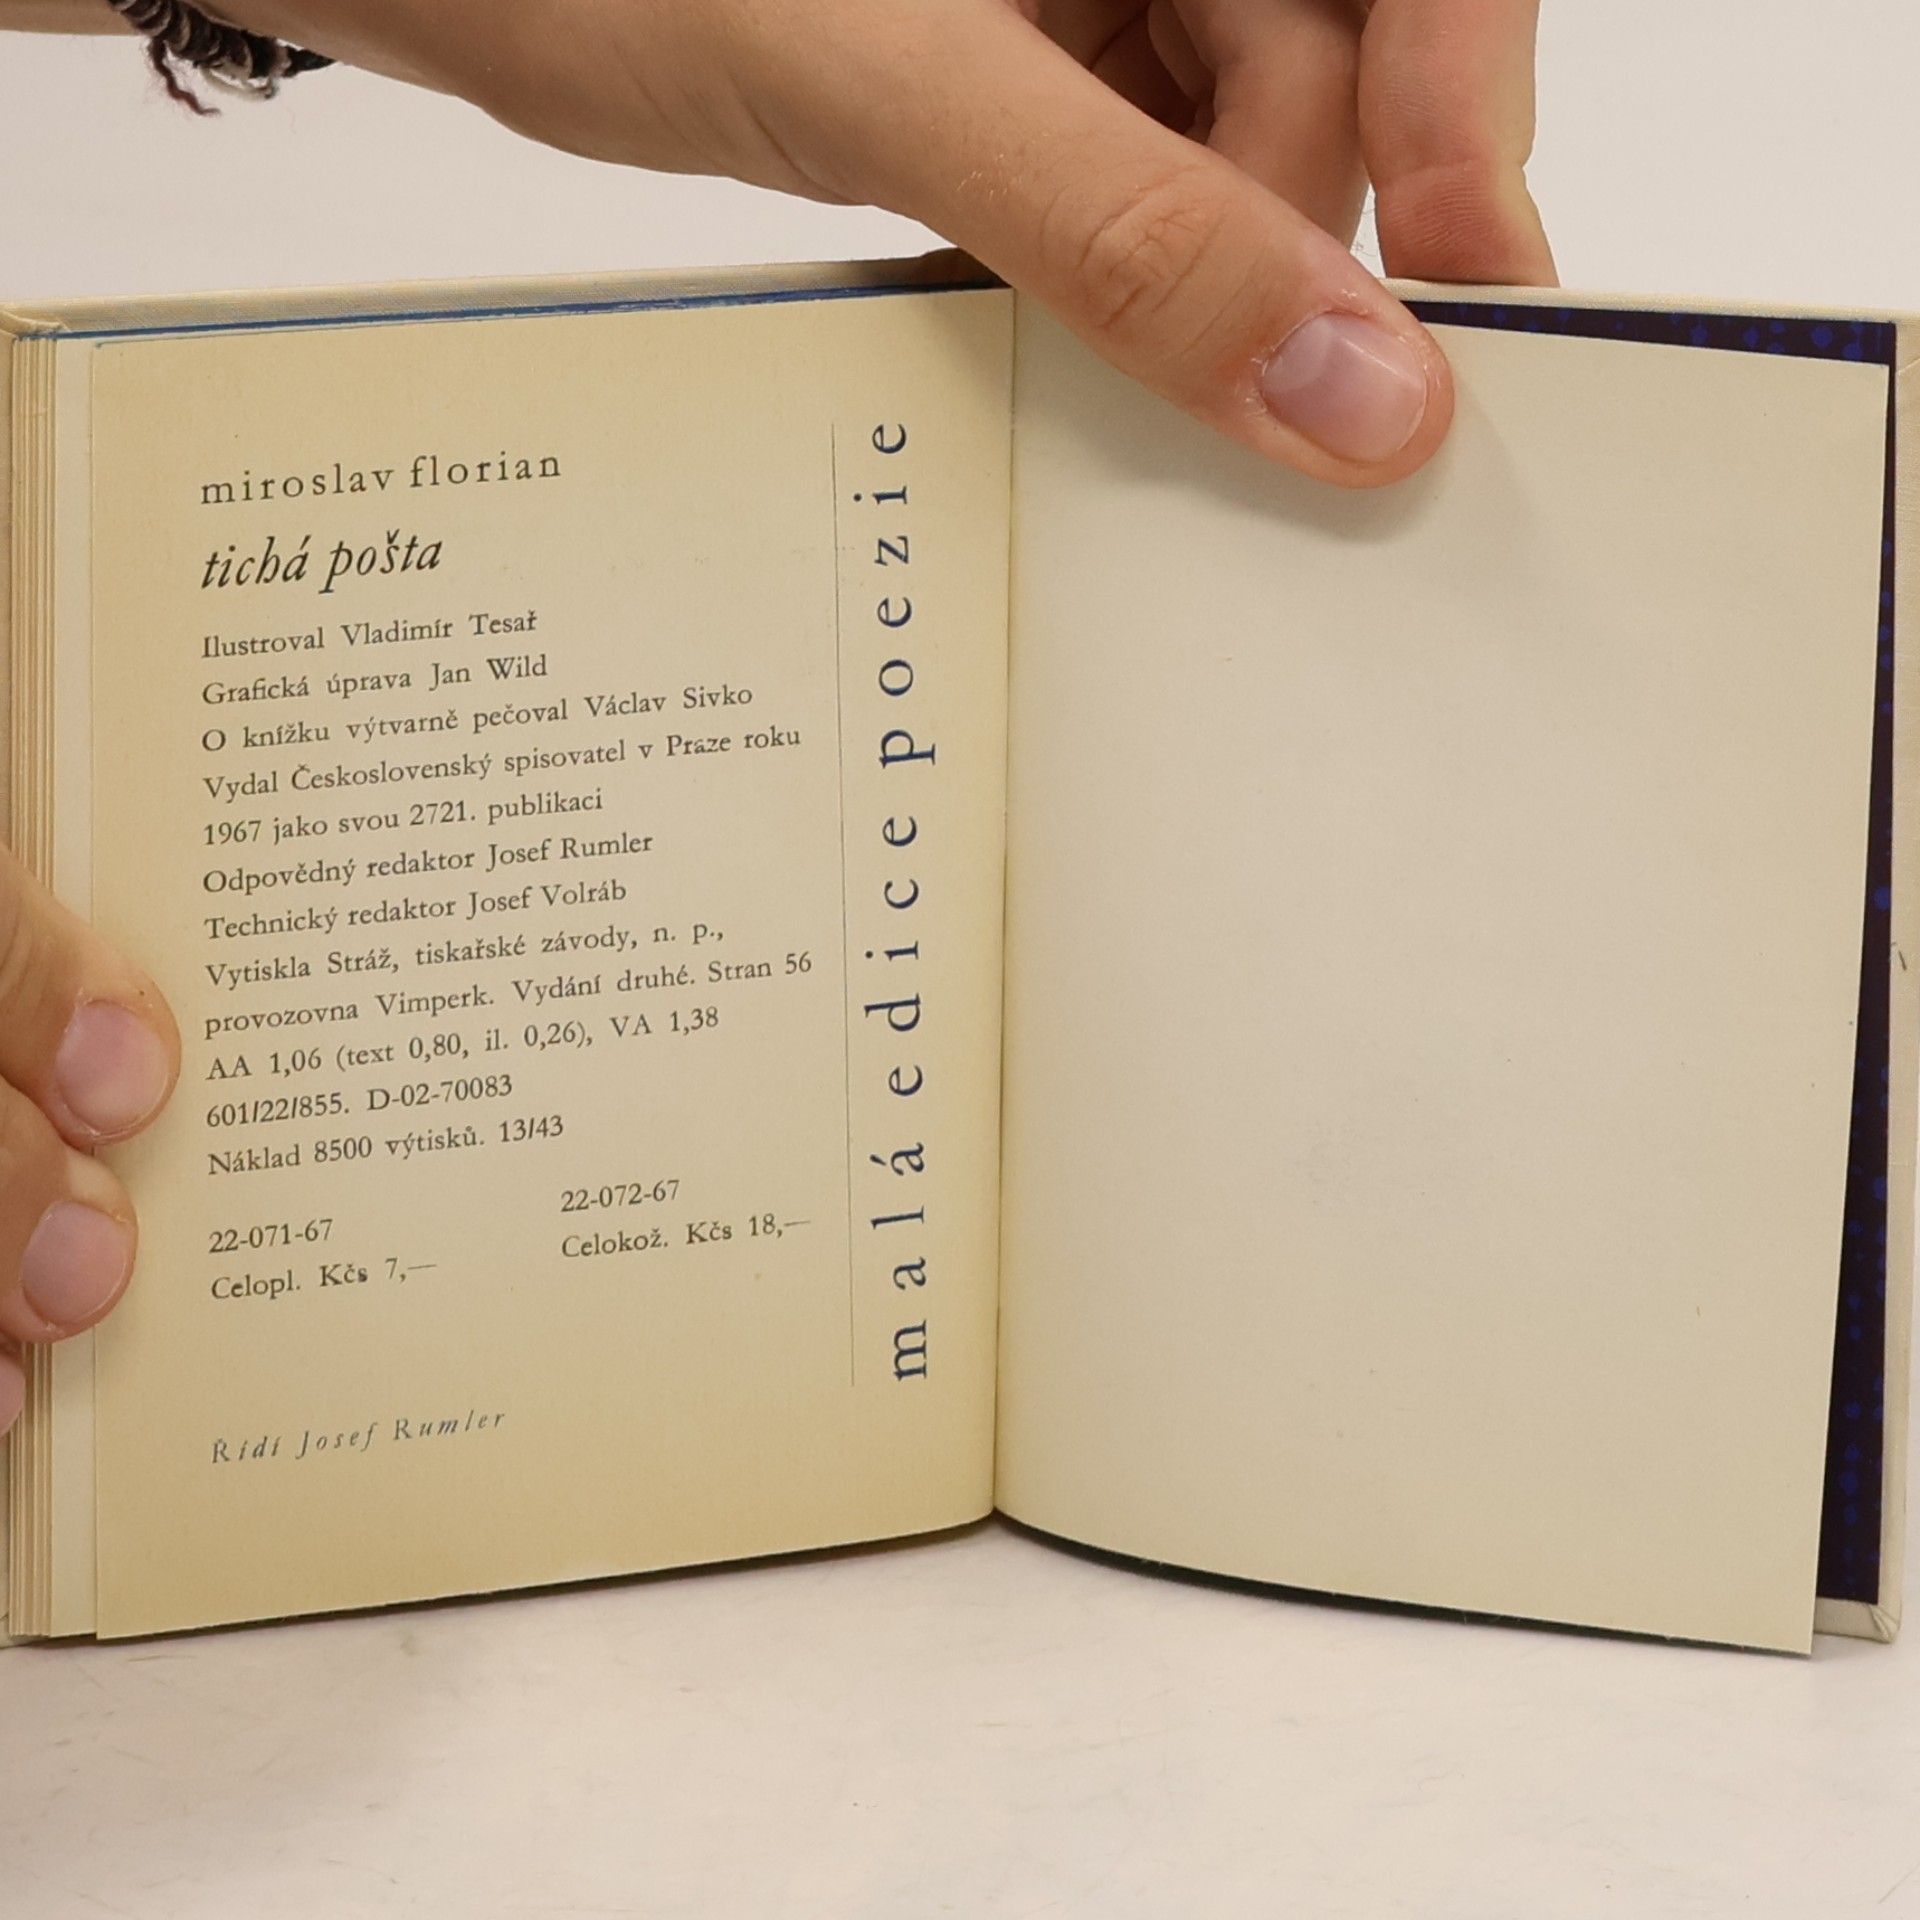 miroslav florian
tichá pošta
Ilustroval Vladimír Tesař
Grafická úprava Jan Wild
O knížku výtvarně pečoval Václav Sivko
Vydal Československý spisovatel v Praze roku
1967 jako svou 2721. publikaci
Odpovědný redaktor Josef Rumler
Technický redaktor Josef Volráb
Vytiskla Stráž, tiskařské závody, n. p.,
provozovna Vimperk. Vydání druhé. Stran 56
AA 1,06 (text 0,80, il. 0,26), VA 1,38
601/22/855. D-02-70083
Náklad 8500 výtisků. 13/43
22-071-67
Celopl. Kčs 7,—
22-072-67
Celokož. Kčs 18,—
Řídí Josef Rumler
malá edice poezie